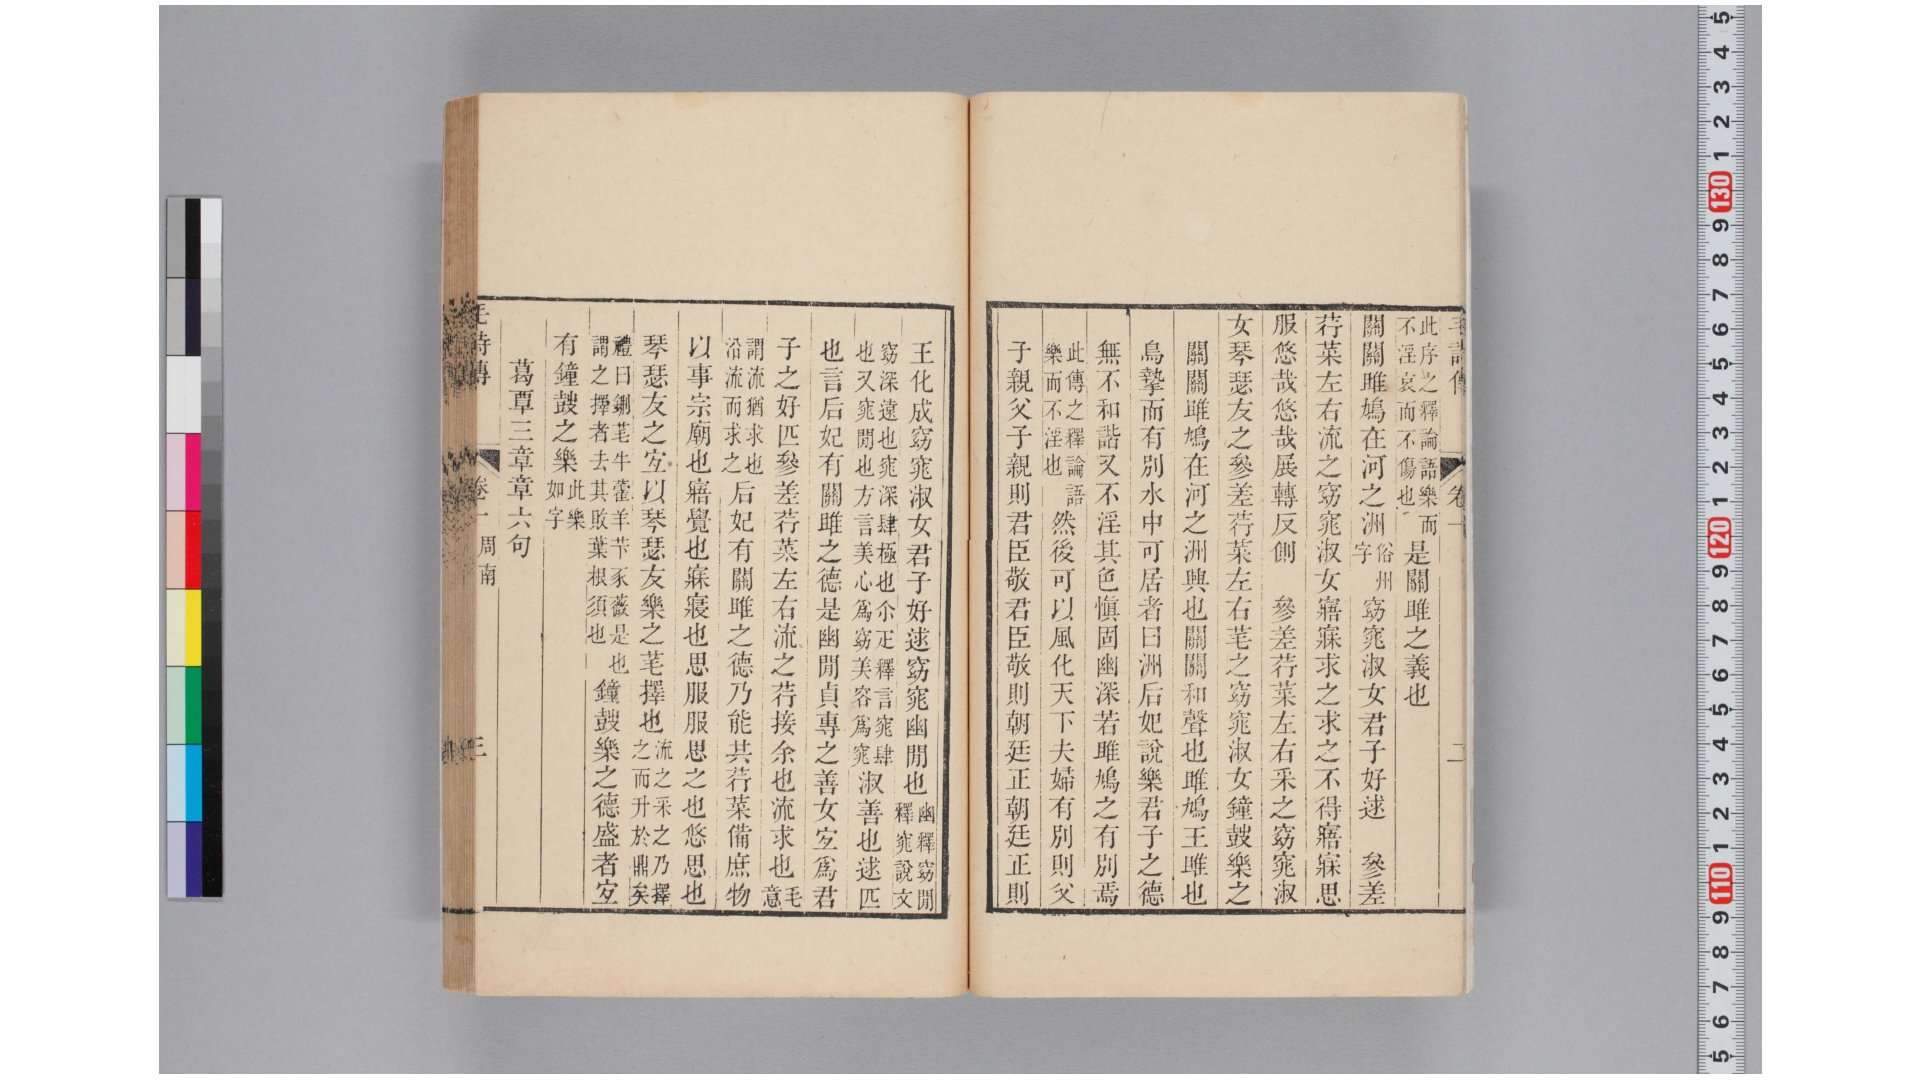 毛詩傳 卷一 二
此序之釋論語樂而
不淫哀而不傷也
是關雎之義也
關關雎鳩在河之洲
俗州
字
窈窕淑女君子好逑 參差
荇菜左右流之窈窕淑女寤寐求之求之不得寤寐思
服悠哉悠哉展轉反側 參差荇菜左右采之窈窕淑
女琴瑟友之參差荇菜左右芼之窈窕淑女鐘鼓樂之
關關雎鳩在河之洲興也關關和聲也雎鳩王雎也
鳥摯而有別水中可居者曰洲后妃說樂君子之德
無不和諧又不淫其色愼固幽深若雎鳩之有別焉
此傳之釋論語
樂而不淫也
然後可以風化天下夫婦有別則父
子親父子親則君臣敬君臣敬則朝廷正朝廷正則
王化成窈窕淑女君子好逑窈窕幽閒也
幽釋窈閒
釋窕說文
窈深遠也窕深肆極也尒疋釋言窕肆
也又窕閒也方言美心爲窈美容爲窕
淑善也逑匹
也言后妃有關雎之德是幽閒貞專之善女宐爲君
子之好匹參差荇菜左右流之荇接余也流求也
毛
意
謂流猶求也
沿流而求之
后妃有關雎之德乃能共荇菜備庶物
以事宗廟也寤覺也寐寢也思服服思之也悠思也
琴瑟友之宐以琴瑟友樂之芼擇也
流之采之乃擇
之而升於鼎矣
禮曰鉶芼牛藿羊芐豕薇是也
謂之擇者去其敗葉根須也
鐘鼓樂之德盛者宐
有鐘鼓之樂
此樂
如字
葛覃三章章六句
毛詩傳 卷一 周南 三
5
4
3
2
1
130
9
8
7
6
5
4
3
2
1
120
9
8
7
6
5
4
3
2
1
110
9
8
7
6
5